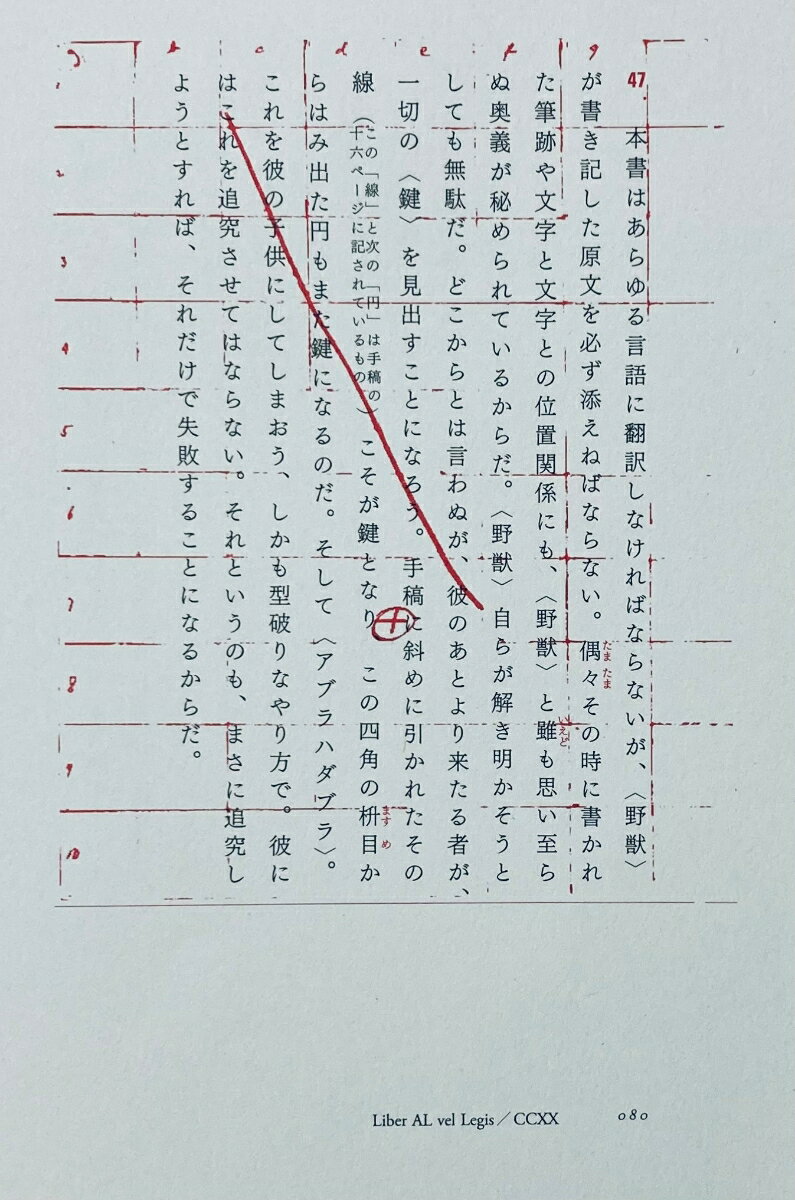 47 本書はあらゆる言語に翻訳しなければならないが、〈野獣〉
が書き記した原文を必ず添えねばならない。偶々その時に書かれ
たまたま
た筆跡や文字と文字との位置関係にも、〈野獣〉と雖も思い至ら
いえど
ぬ奥義が秘められているからだ。〈野獣〉自らが解き明かそうと
しても無駄だ。どこからとは言わぬが、彼のあとより来たる者が、
一切の〈鍵〉を見出すことになろう。手稿に斜めに引かれたその
線（この「線」と次の「円」は手稿の
十六ページに記されているもの）こそが鍵となり この四角の枡目か
ますめ
らはみ出た円もまた鍵になるのだ。そして〈アブラハダブラ〉。
これを彼の子供にしてしまおう、しかも型破りなやり方で。彼に
はこれを追究させてはならない。それというのも、まさに追究し
ようとすれば、それだけで失敗することになるからだ。
b c d e f g
2
3
4
5
6
7
8
9
10
Liber AL vel Legis／CCXX 080